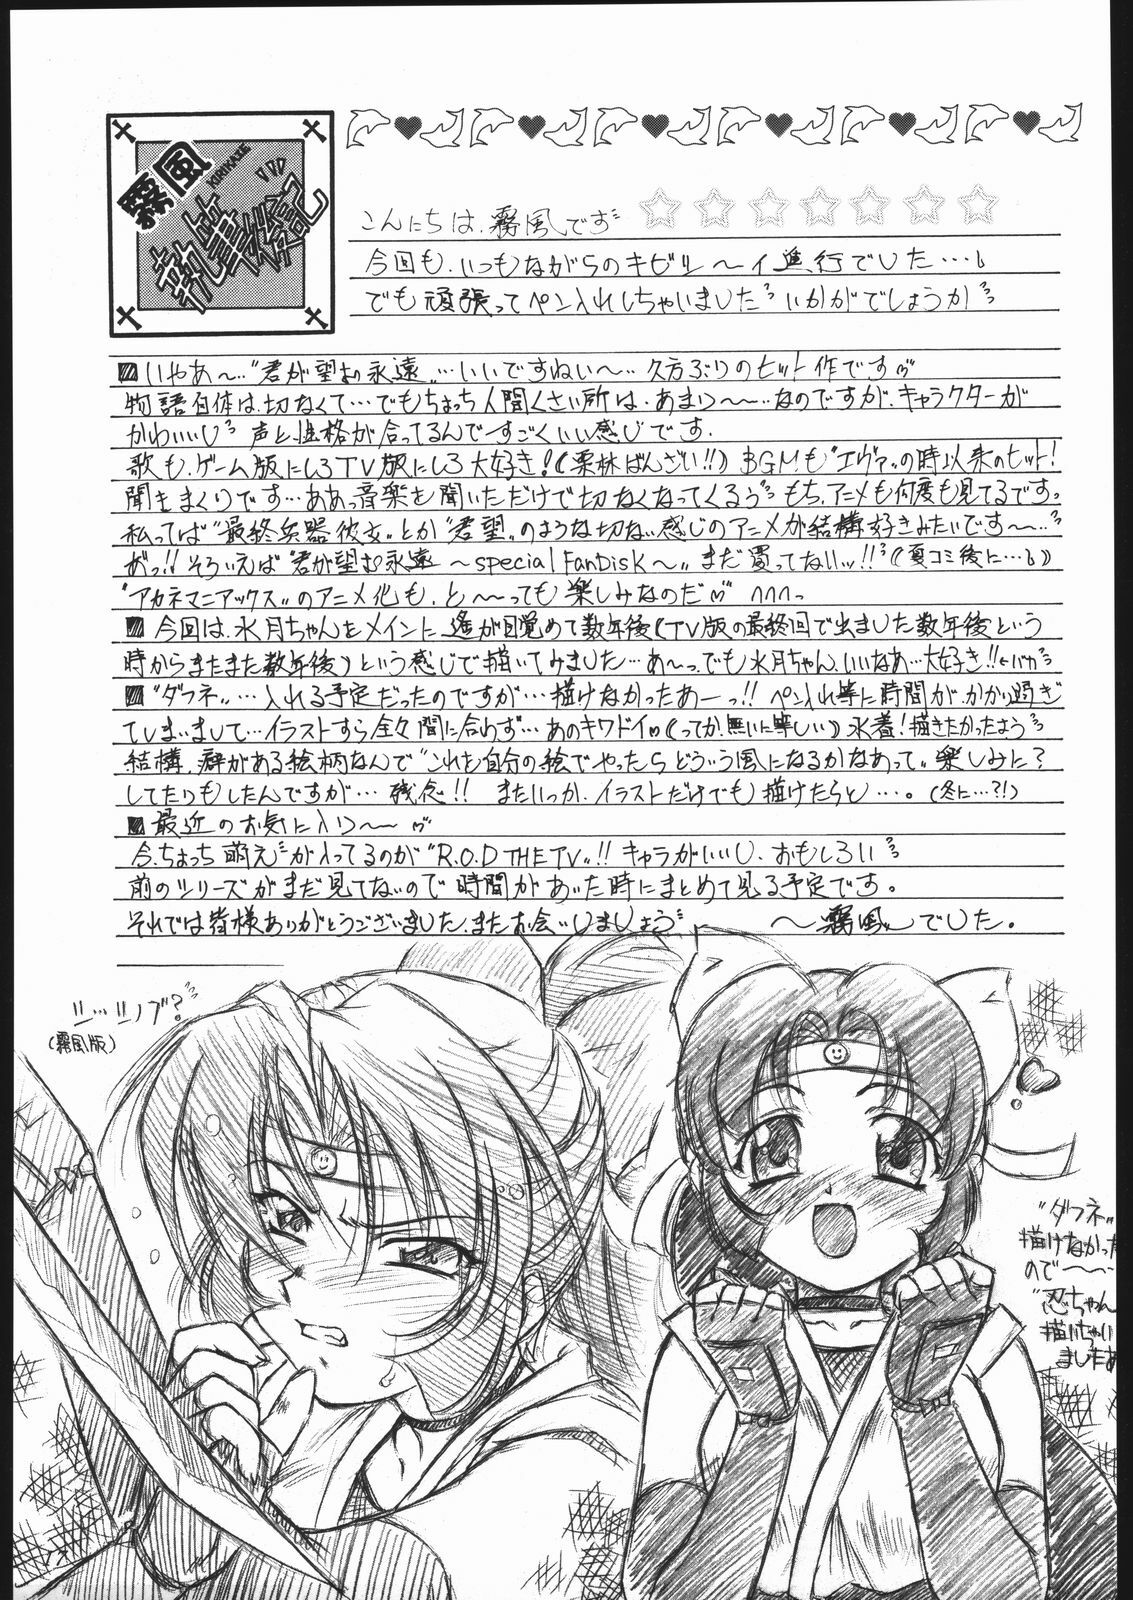 霧風
KIRIKAZE
執筆後記
こんにちは、霧風です
今回も、いつもながらのキビシ〜イ進行でした…
でも頑張ってペン入れしちゃいました いかがでしょうか
■いやあ〜…“君が望む永遠”…いいですねぃ〜…久方ぶりのヒット作です
物語自体は、切なくて…でもちょっち人間くさい所は、あまり〜…なのですが、キャラクターが
かわいいし 声と、性格が合ってるんですごくいい感じです。
歌も、ゲーム版にしろTV版にしろ大好き!(栗林ばんざい!!)BGMも“エヴァ”の時以来のヒット!
聞きまくりです…ああっ音楽を聞いただけで切なくなってくるぅ もち、アニメも何度も見てるです。
私ってば“最終兵器彼女”とか“君望”のような切ない感じのアニメが結構好きみたいです〜…
あっ!!そういえば“君が望む永遠〜special FanDisk〜”まだ買ってないッ!!(夏コミ後に…)
“アカネマニアックス”のアニメ化も、と〜〜っても楽しみなのだ
■今回は、水月ちゃんをメインに遙が目覚めて数年後(TV版の最終回で出ました数年後という
時からまたまた数年後)という感じで描いてみました…あ〜っでも水月ちゃん、いいなあ…大好き!!←バカ
■“ダフネ”…入れる予定だったのですが…描けなかったあーっ!!ペン入れ等に時間が、かかり過ぎ
てしまいまして…イラストすら全々間に合わず…あのキワドイ(ってか、無いに等しい)水着!描きたかったよう
結構、癖がある絵柄なんで“これを自分の絵でやったらどういう風になるかなあって”楽しみに?
してたりもしたんですが…残念!!またいつか、イラストだけでも描けたらと…。(冬に…?!)
■最近のお気に入り〜〜
今、ちょっち萌えが入ってるのが“R.O.D THE TV”!!キャラがいいし、おもしろい
前のシリーズがまだ見てないので時間があいた時にまとめて見る予定です。
それでは皆様ありがとうございました、またお会いしましょう
〜霧風でした。
シ…シノブ?
(霧風版)
“ダフネ”
描けなかった
ので〜〜…
“忍ちゃん
描いちゃい
ましたあ